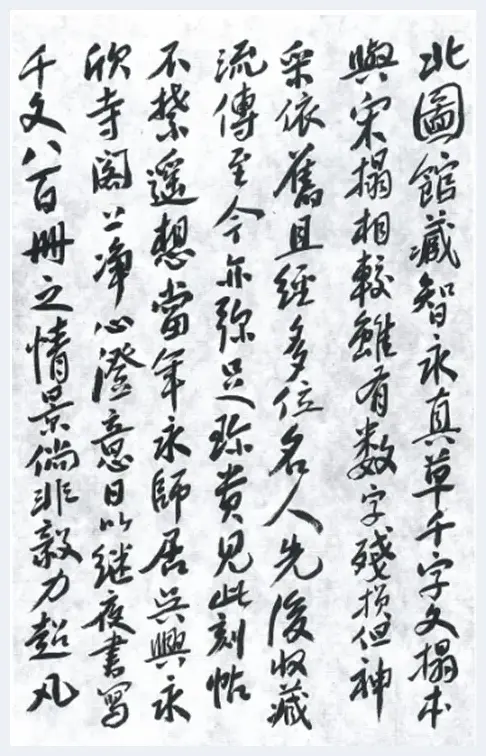 北圖館藏智永真草千字文搨本
與宋搨相較雖有数字殘损但神
采依舊且經多位名人先後收藏
流傳至今亦弥足珎貴見此刻帖
不禁遥想當年永師居吳興永
欣寺閣上凈心澄意日以继夜書寫
千文八百冊之情景倘非毅力超凡